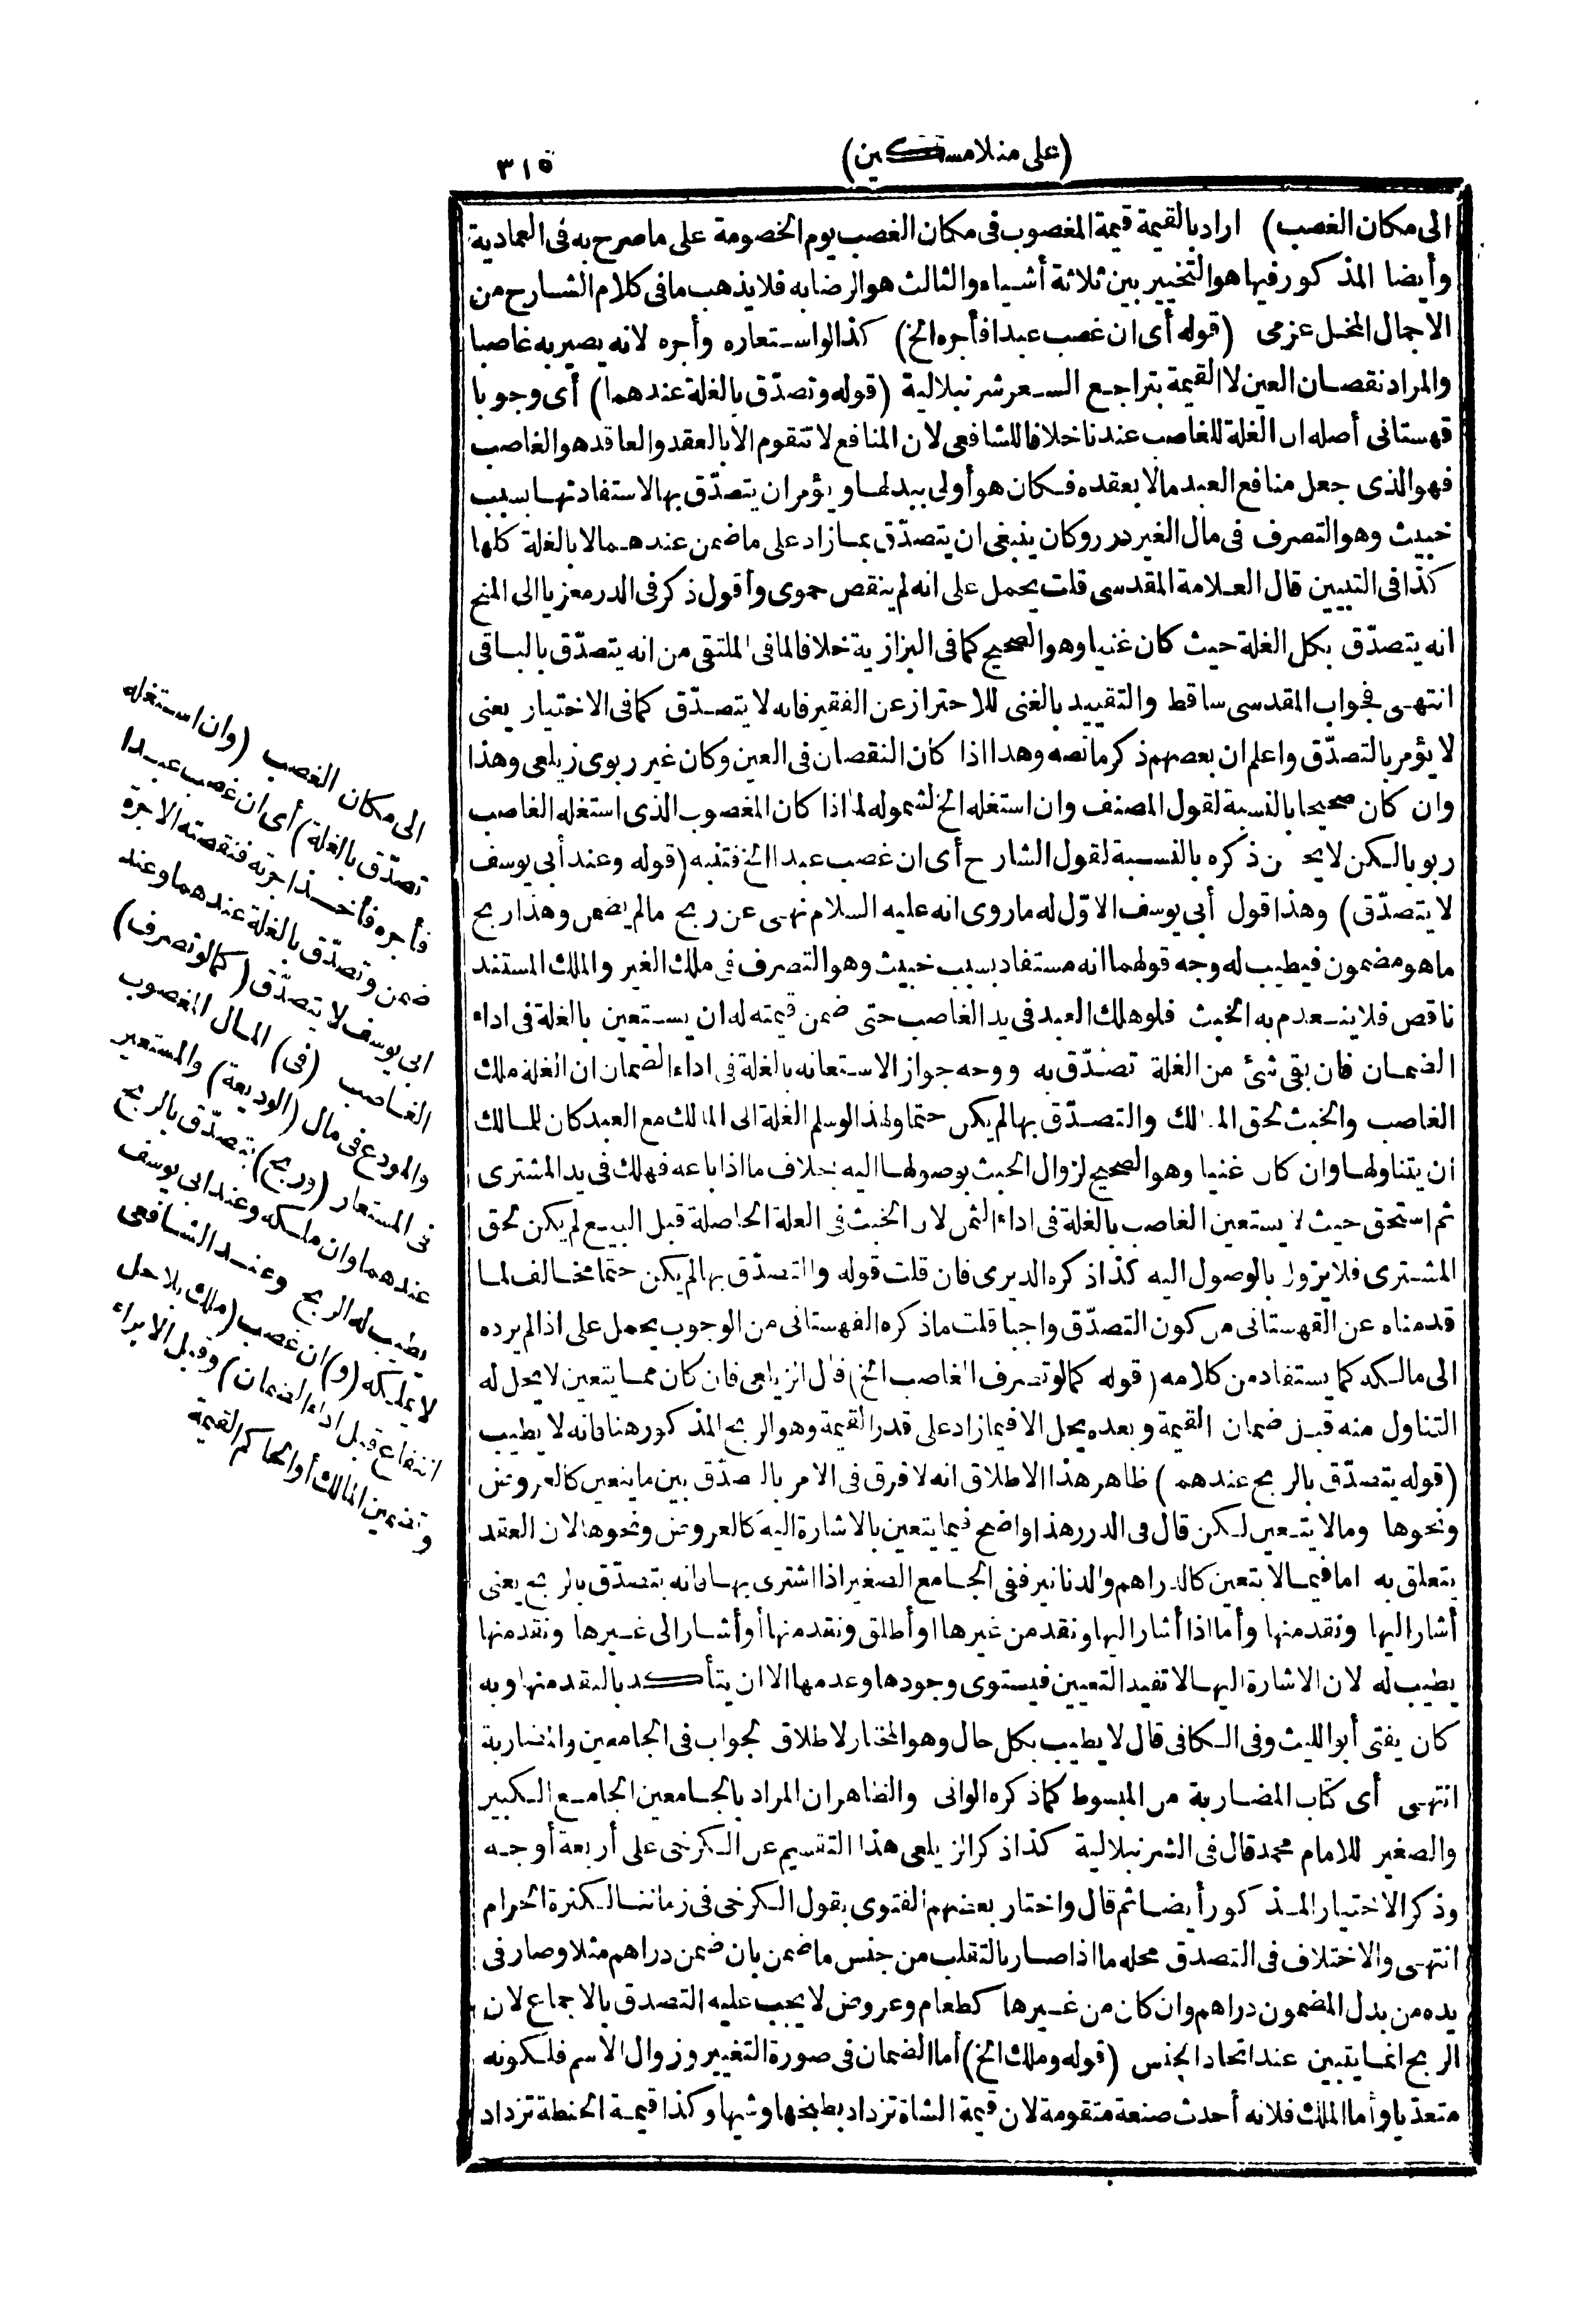 (على منلا مسكين)
٣١٥
الى مكان الغصب) اراد بالقيمة قيمة المغصوب فى مكان الغصب يوم الخصومة على ما صرح به فى العمادية
وأيضا المذكور فيها هو التخيير بين ثلاثة أشياء والثالث هو الرضا به فلا يذهب ما فى كلام الشارح من
الاجمال المخل عزمى (قوله أى ان غصب عبدا فأجره الخ) كذا لو استعاره وأجره لانه يصير به غاصبا
والمراد نقصان العين لا القيمة بتراجع السعر شرنبلالية (قوله وتصدّق بالغلة عندهما) أى وجوبا
قهستانى أصله ان الغلة للغاصب عندنا خلافا للشافعى لان المنافع لا تتقوم الا بالعقد والعاقد هو الغاصب
فهو الذى جعل منافع العبد مالا بعقده فكان هو أولى ببدلها ويؤمر ان يتصدّق بها لاستفادتها بسبب
خبيث وهو التصرف فى مال الغير درر وكان ينبغى ان يتصدّق بما زاد على ما ضمن عندهما لا بالغلة كلها
كذا فى التبيين قال العلامة المقدسى قلت يحمل على انه لم ينقص حموى وأقول ذكر فى الدر معزيا الى المنح
انه يتصدّق بكل الغلة حيث كان غنيا وهو الصحيح كما فى البزازية خلافا لما فى الملتقى من انه يتصدّق بالباقى
انتهى فجواب المقدسى ساقط والتقييد بالغنى للاحتراز عن الفقير فانه لا يتصدّق كما فى الاختيار يعنى
لا يؤمر بالتصدّق واعلم ان بعضهم ذكر ما نصه وهذا اذا كان النقصان فى العين وكان غير ربوى زيلعى وهذا
وان كان صحيحا بالنسبة لقول المصنف وان استغله الخ لشموله لما اذا كان المغصوب الذى استغله الغاصب
ربويا لكن لا يحسن ذكره بالنسبة لقول الشارح أى ان غصب عبدا الخ فتنبه (قوله وعند أبى يوسف
لا يتصدّق) وهذا قول أبى يوسف الاوّل له ما روى انه عليه السلام نهى عن ربح مالم يضمن وهذا ربح
ما هو مضمون فيطيب له وجه قولهما انه مستفاد بسبب خبيث وهو التصرف فى ملك الغير والملك المستند
ناقص فلا ينعدم به الخبث فلو هلك العبد فى يد الغاصب حتى ضمن قيمته له ان يستعين بالغلة فى اداء
الضمان فان بقى شئ من الغلة تصدّق به ووجه جواز الاستعانه بالغلة فى اداء الضمان ان الغلة ملك
الغاصب والخبث لحق المالك والتصدّق بها لم يكن حتما ولهذا لو سلم الغلة الى المالك مع العبد كان للمالك
أن يتناولها وان كان غنيا وهو الصحيح لزوال الخبث بوصولها اليه بخلاف ما اذا باعه فهلك فى يد المشترى
ثم استحق حيث لا يستعين الغاصب بالغلة فى اداء الثمن لان الخبث فى الغلة الحاصلة قبل البيع لم يكن لحق
المشترى فلا يزول بالوصول اليه كذا ذكره الديرى فان قلت قوله والتصدّق بها لم يكن حتما مخالف لما
قدمناه عن القهستانى من كون التصدّق واجبا قلت ما ذكره القهستانى من الوجوب يحمل على اذا لم يرده
الى مالكه كما يستفاد من كلامه (قوله كما لو تصرف الغاصب الخ) قال الزيلعى فان كان مما يتعين لا يحل له
التناول منه قبل ضمان القيمة وبعده يحل الا فيما زاد على قدر القيمة وهو الربح المذكور هنا فانه لا يطيب
(قوله يتصدّق بالربح عندهما) ظاهر هذا الاطلاق انه لا فرق فى الامر بالتصدّق بين ما يتعين كالعروض
ونحوها وما لا يتعين لكن قال فى الدرر هذا واضح فيما يتعين بالاشارة اليه كالعروض ونحوها لان العقد
يتعلق به اما فيما لا يتعين كالدراهم والدنانير ففى الجامع الصغير اذا اشترى بها فانه يتصدّق بالربح يعنى
أشار اليها ونقد منها وأما اذا أشار اليها ونقد من غيرها أو أطلق ونقد منها أو أشار الى غيرها ونقد منها
يطيب له لان الاشارة اليها لا تفيد التعيين فيستوى وجودها وعدمها الا ان يتأكد بالنقد منها وبه
كان يفتى أبو الليث وفى الكافى قال لا يطيب بكل حال وهو المختار لاطلاق الجواب فى الجامعين والمضاربة
انتهى أى كتاب المضاربة من المبسوط كما ذكره الوانى والظاهر ان المراد بالجامعين الجامع الكبير
والصغير للامام محمد قال فى الشرنبلالية كذا ذكر الزيلعى هذا التقسيم عن الكرخى على أربعة أوجه
وذكر الاختيار المذكور أيضا ثم قال واختار بعضهم الفتوى بقول الكرخى فى زماننا لكثرة الحرام
انتهى والاختلاف فى التصدق محله ما اذا صار بالتقلب من جنس ما ضمن بان ضمن دراهم مثلا وصار فى
يده من بدل المضمون دراهم وان كان من غيرها كطعام وعروض لا يجب عليه التصدق بالاجماع لان
الربح انما يتبين عند اتحاد الجنس (قوله وملك الخ) أما الضمان فى صورة التغيير وزوال الاسم فلكونه
متعديا وأما الملك فلانه أحدث صنعة متقومة لان قيمة الشاة تزداد بطبخها وشيها وكذا قيمة الحنطة تزداد
الى مكان الغصب (وان استغله
تصدّق بالغلة) أى ان غصب عبدا
فأجره فأخذ اجرته فنقصته الاجرة
ضمن وتصدّق بالغلة عندهما وعند
ابى يوسف لا يتصدّق (كما لو تصرف)
الغاصب (فى) المال المغصوب
والمودع فى مال (الوديعة) والمستعير
فى المستعار (وربح) يتصدّق بالربح
عندهما وان ملكه وعند ابى يوسف
يطيب له الربح وعند الشافعى
لا يملكه (و) ان غصب (ملك بلا حل
انتفاع قبل اداء الضمان) وقبل الابراء
وتضمين المالك أو الحاكم القيمة